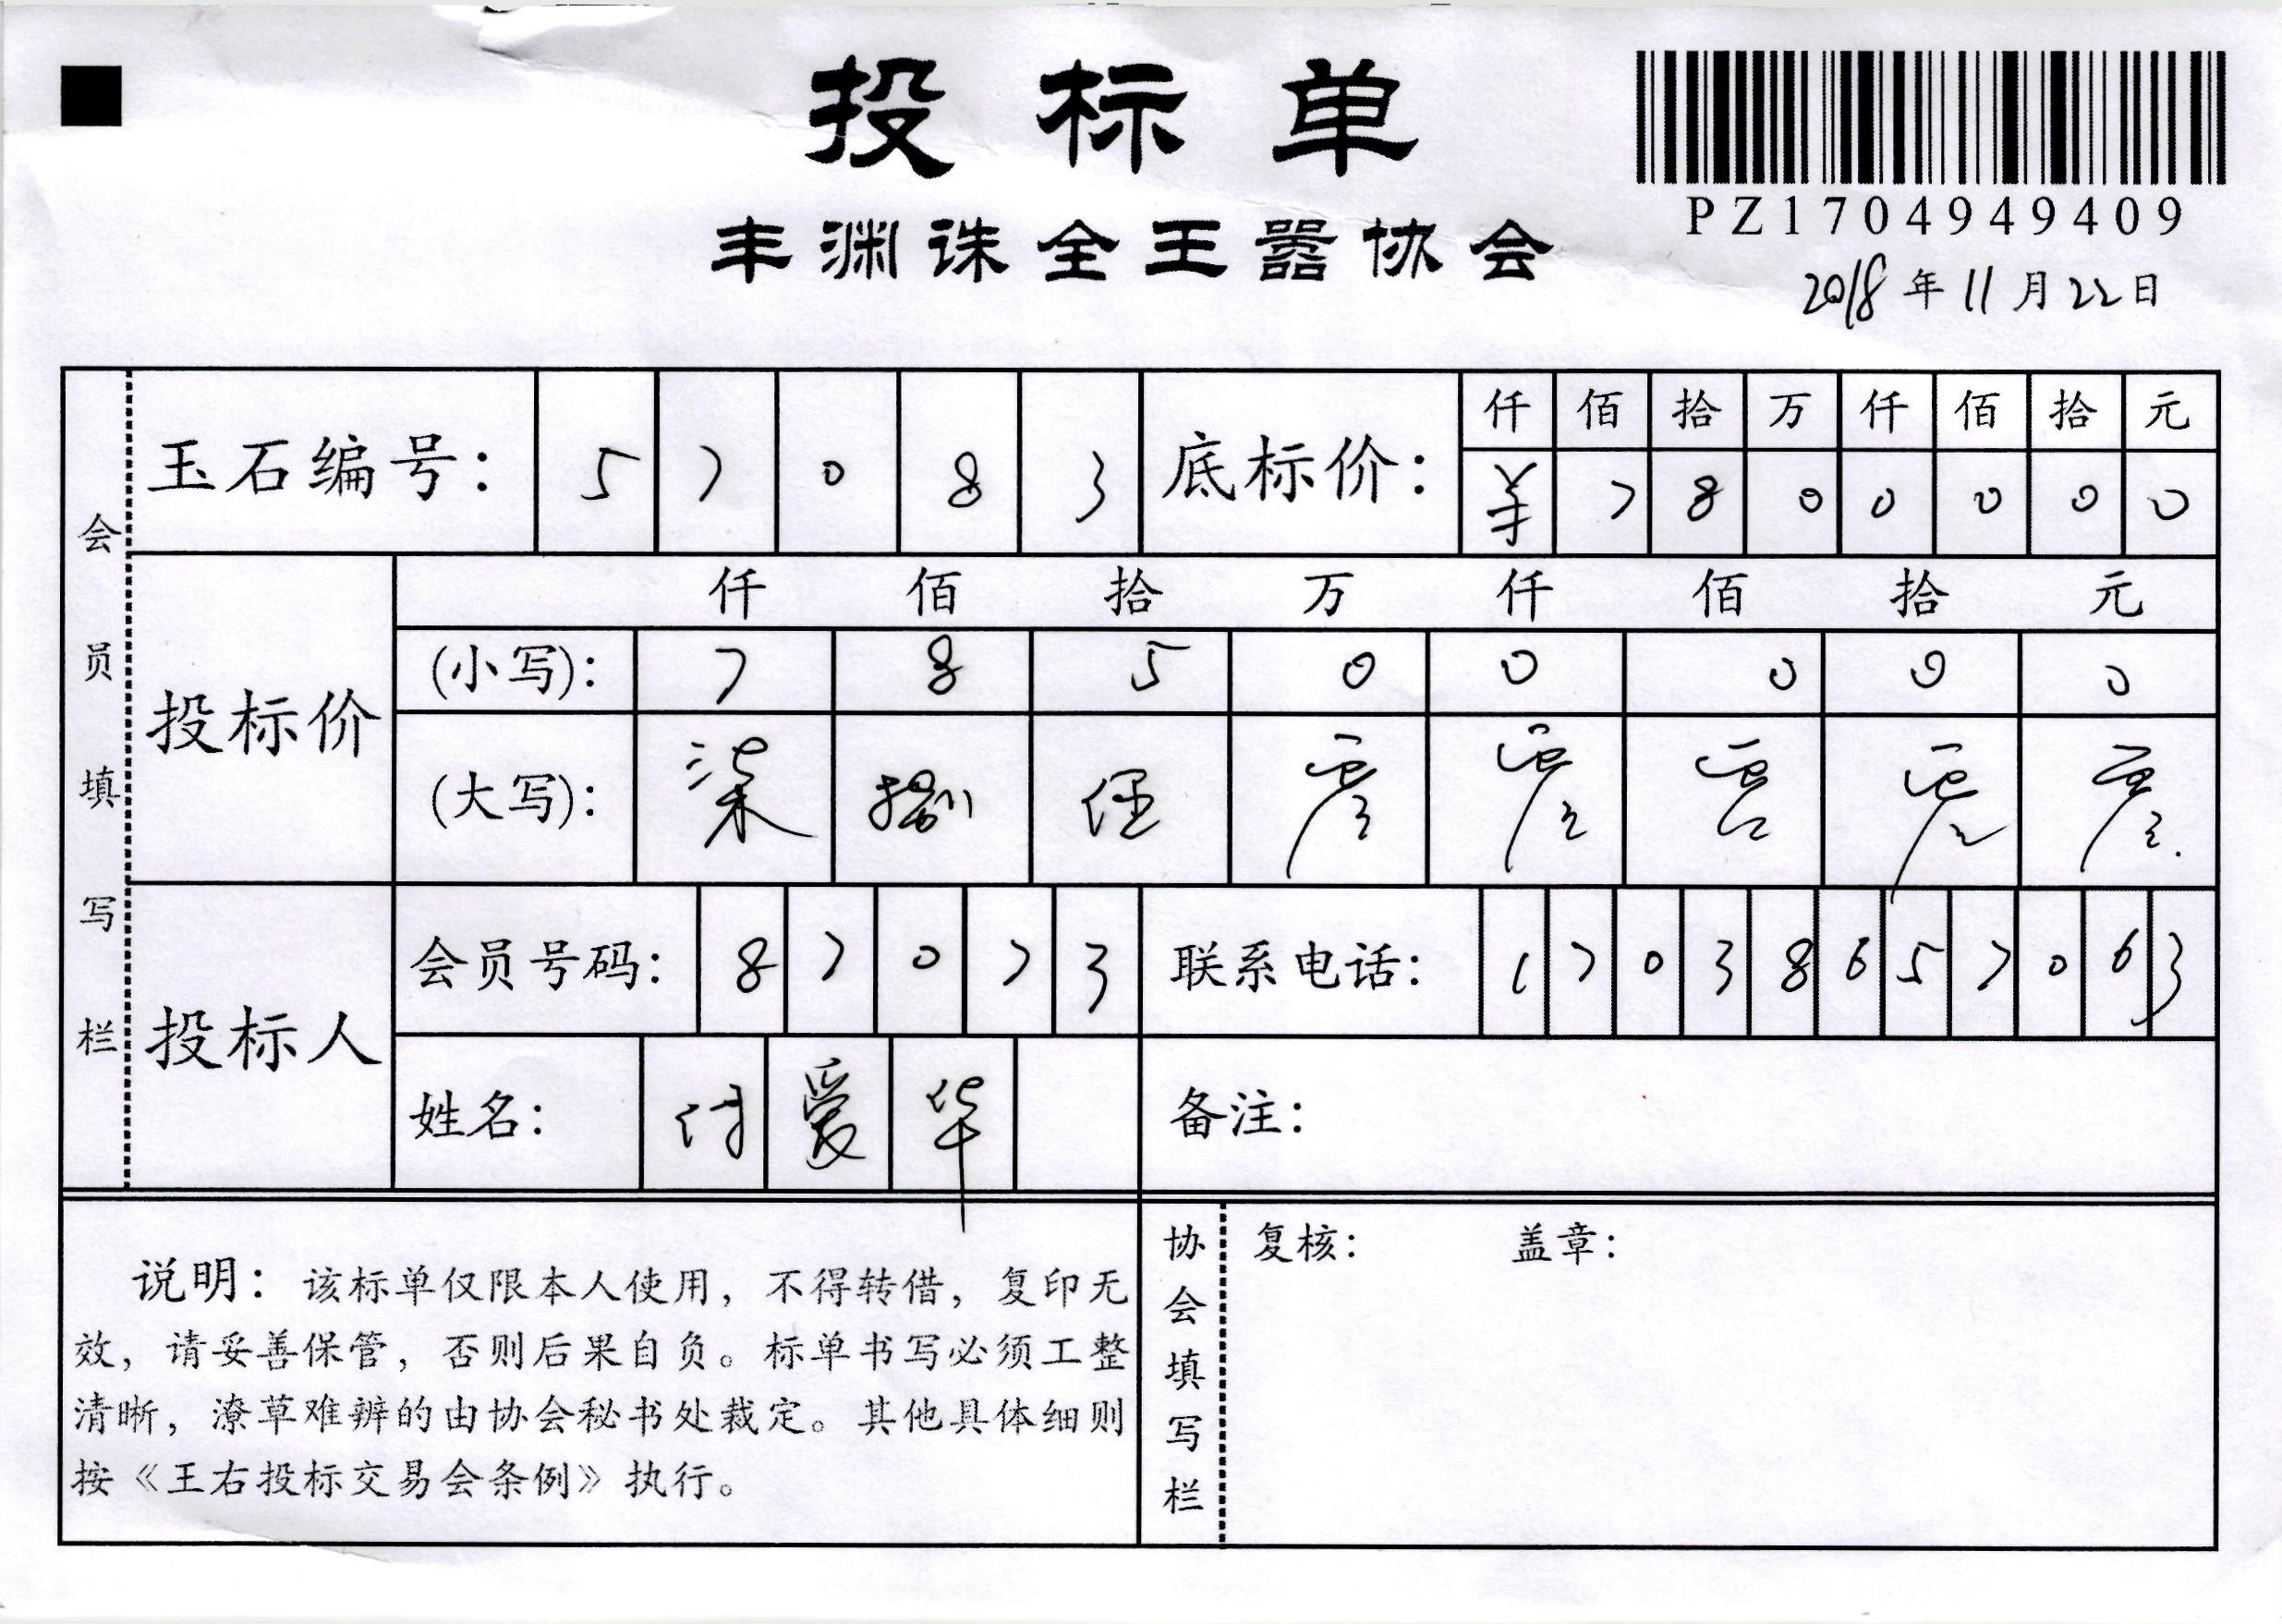 投标单
PZ1704949409
丰渊诛全王嚣协会
2018年11月22日
会员填写栏
玉石编号: 5 7 0 8 3
底标价: 仟 佰 拾 万 仟 佰 拾 元
¥ 7 8 0 0 0 0 0
投标价
仟 佰 拾 万 仟 佰 拾 元
(小写): 7 8 5 0 0 0 0 0
(大写): 柒 捌 伍 零 零 零 零 零
投标人
会员号码: 8 7 0 7 3
联系电话: 1 7 0 3 8 6 5 7 0 6 3
姓名: 付 爱 华
备注:
说明: 该标单仅限本人使用, 不得转借, 复印无
效, 请妥善保管, 否则后果自负。标单书写必须工整
清晰, 潦草难辨的由协会秘书处裁定。其他具体细则
按《王右投标交易会条例》执行。
协会填写栏
复核: 盖章: